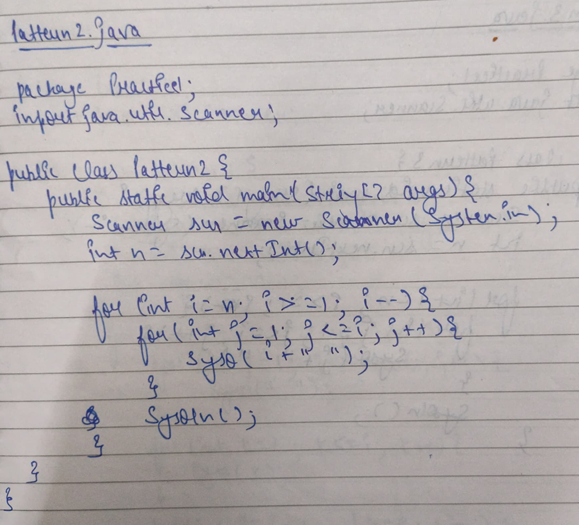 Pattern2.java
package Practice1;
import java.util.Scanner;
public class Pattern2 {
public static void main(String[] args){
Scanner scn = new Scanner(System.in);
int n = scn.nextInt();
for (int i=n; i>=1; i--){
for(int j=1; j<=i; j++){
Syso( i+" ");
}
Sysoln();
}
}
}